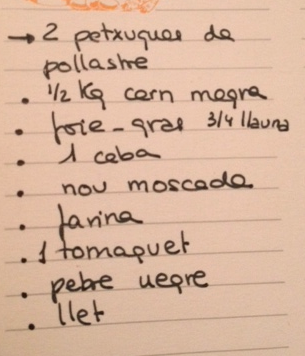 → 2 petxugues de
pollastre
• 1/2 Kg carn magra
• foie-gras 3/4 llauna
• 1 ceba
• nou moscada
• farina
• 1 tomaquet
• pebre negre
• llet